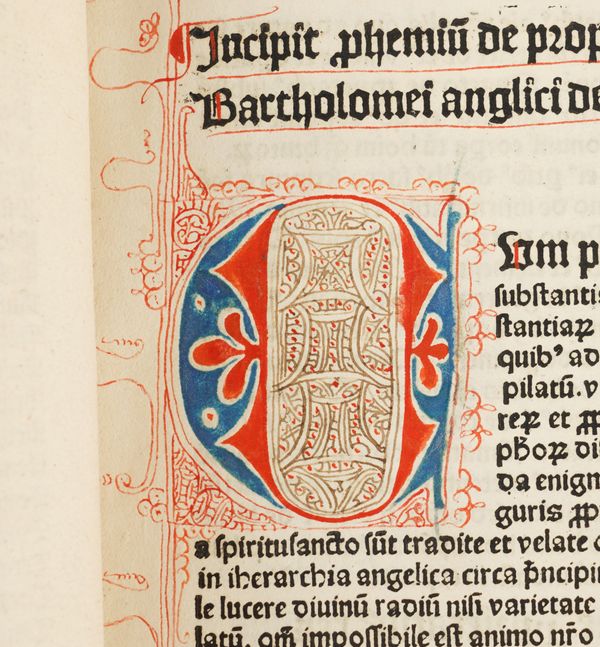 Incipit ꝓhemiū de prop
Bartholomei anglici de
CUm p
substanti
stantiaꝝ
quibꝰ ad
pilatū. v
reꝝ et ꝓp
phoꝝ di
da enigm
guris ꝓp
a spiritusancto sūt tradite et velate
in iherarchia angelica circa p̄ncipi
le lucere diuinū radiū nisi varietate
latū. qm̄ impossibile est animo nr̄o